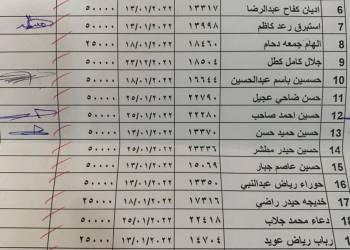 ٦ اديان كفاح عبدالرضا ١٣٣١٧ ١٣/٠١/٢٠٢٢ ٥٠٠٠٠
٧ استبرق رعد كاظم ١٣٩٩٨ ١٣/٠١/٢٠٢٢ ٥٠٠٠٠
٨ الهام جمعه دحام ١٨٤٦٠ ١٨/٠١/٢٠٢٢ ٢٥٠٠٠
٩ جلال كامل كطل ١٨٥٠٤ ٢٣/١٢/٢٠٢١ ٥٠٠٠٠
١٠ حسسين باسم عبدالحسين ١٦٦٤٤ ١٨/٠١/٢٠٢٢ ٥٠٠٠٠
١١ حسن ضاحي عجيل ٢٢٧٩٠ ٢٥/٠١/٢٠٢٢ ٥٠٠٠٠
١٢ حسين احمد صاحب ٢٢٢٨٠ ٢٥/٠١/٢٠٢٢ ٥٠٠٠٠
١٣ حسين حميد حسن ١٣٣٧٠ ١٣/٠١/٢٠٢٢ ٥٠٠٠٠
١٤ حسين حيدر مطشر ٢٣٢٣٦ ٢٥/٠١/٢٠٢٢ ٥٠٠٠٠
١٥ حسين عاصم جبار ١٥٠٦٩ ١٣/٠١/٢٠٢٢ ٥٠٠٠٠
١٦ حوراء رياض عبدالنبي ١٣٣٥٠ ١٣/٠١/٢٠٢٢ ٥٠٠٠٠
١٧ خديجه حيدر راضي ١٧٣١٦ ١٨/٠١/٢٠٢٢ ٢٥٠٠٠
دعاء محمد جلاب ٢٢٤١٨ ٢٥/٠١/٢٠٢٢ ٥٠٠٠٠
رباب رياض عويد ١٤٧٠٤ ١٣/٠١/٢٠٢٢ ٢٥٠٠٠